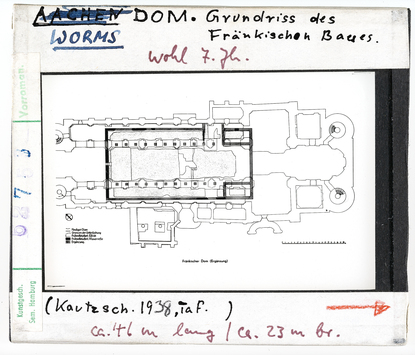 AACHEN DOM. Grundriss des
WORMS Fränkischen Baues.
wohl 7. Jh.
Fränkischer Dom (Ergänzung)
(Kautzsch. 1938, Taf. )
ca. 46 m lang / ca. 23 m br.
Kunstgesch.
Sem. Hamburg